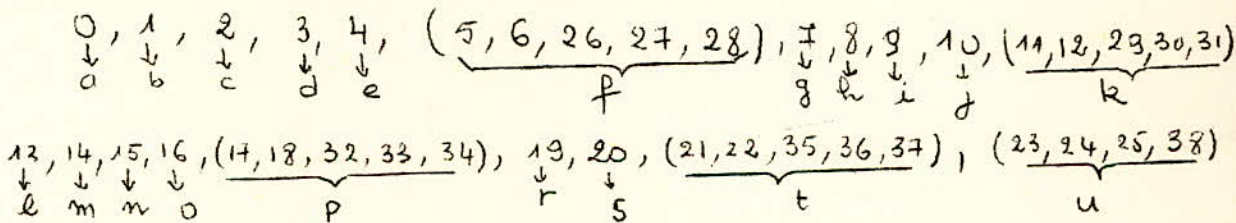 0, 1, 2, 3, 4, (5, 6, 26, 27, 28), 7, 8, 9, 10, (11, 12, 29, 30, 31)
a b c d e f g h i j k
13, 14, 15, 16, (17, 18, 32, 33, 34), 19, 20, (21, 22, 35, 36, 37), (23, 24, 25, 38)
l m n o p r s t u